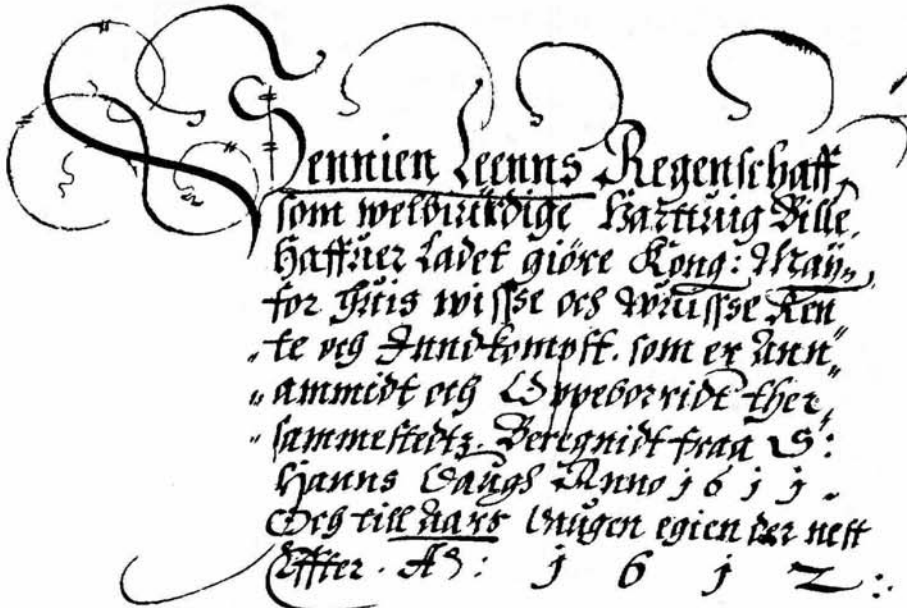 Hennien Leenns Regenschaff,
som welbiurdige Harttuig Bille.
Haffuer Ladet giöre Kong: Maÿ„
for Huis wissse och Wuissse Ren
„te och Inndkompst. som er Ann„
„ammidt och Oppeborridt ther„
„sammestedtz. Beregnidt fraa S:
Hanns Daugh Anno 1611.
Och till Aars Daugen egien der nest
Effter. Ao: 1612: